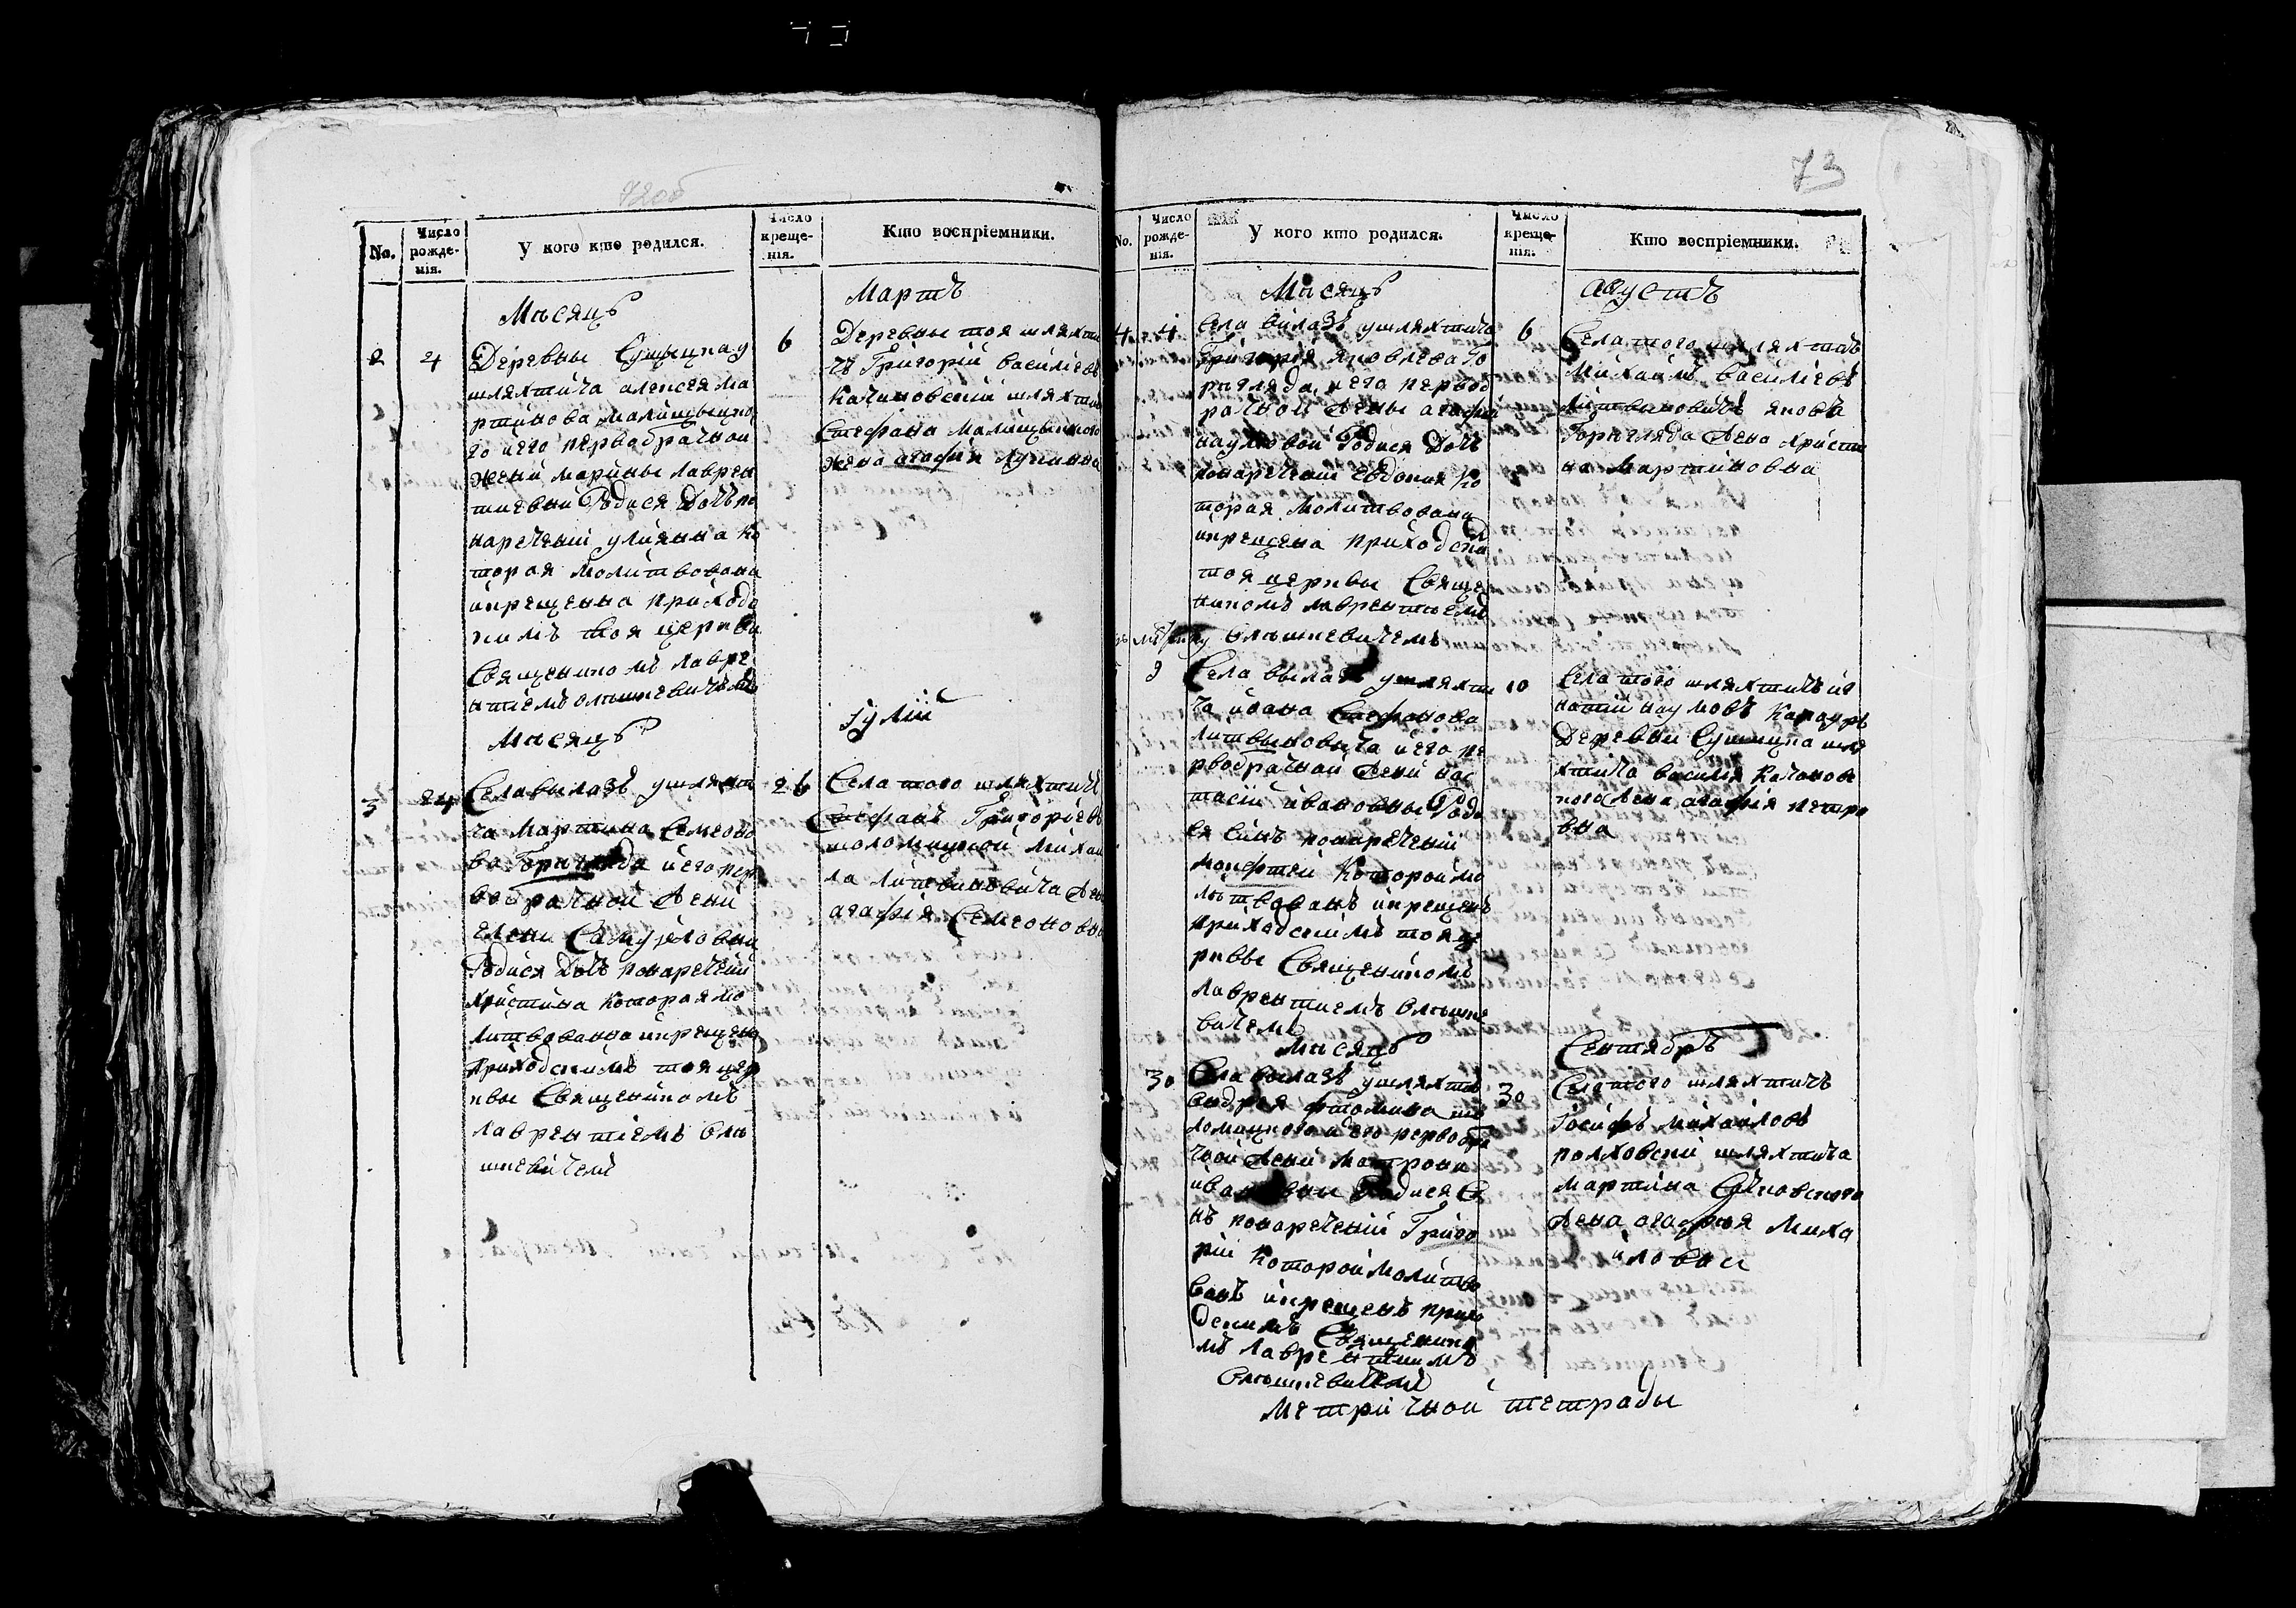 72об
No.
Число рожде-нія.
У кого кто родился.
Число креще-нія.
Кто воспріемники.
Мѣсяцъ
Мартъ
2
4
6
Деревны Сущицка у
шляхтича алексея Ма
ртинова малищицко
го и его первобрачной
жены марины лаврен
тиевны Родися Дочъ по
наречений улияна ко
торая молитвована
и крещенна приходс
кимъ тоя церкви
Священикомъ лавре
нтиемъ
Деревны тоя шляхти
чъ Григорій василіевъ
качановский шляхтича
Стефана малищицкого
жена агафия лукинна
Мѣсяцъ
Іулій
3
24
26
Села вылазъ у шляхти
ча Мартина Семеоно
ва Горегляда и его пер
вобрачной жены
елены Самуѣловны
Родися Дочъ понаречений
христина которая мо
литвованна и крещена
приходскимъ тоя цер
квы Священикомъ
лаврентіемъ
Села того шляхтичъ
Стефанъ Григоріевъ
толомицкой михаи
ла литвиновича жена
агафія Семеоновна
73
No.
Число рожде-нія.
У кого кто родился.
Число креще-нія.
Кто воспріемники.
Мѣсяцъ
августъ
4
4
6
Села вылазъ у шляхтича
Григорія яковлева Го
регляда и его первоб
рачной жены агафии
наумовой Родися Дочъ
понаречений Евдокия ко
торая молитвована
и крещена приходска
тоя церквы Священ
никомъ лаврентиемъ
Села того шляхтичъ
Михаилъ василіевъ
литвиновичъ якова
Горегляда жена христи
на Мартиновна
9
10
Села вылазъ у шляхти
ча ивана Стефанова
литвыновича и его пе
рвобрачной жены нас
тасіи ивановны Роди
ся синъ понаречений
которой мо
лытвованъ и крещенъ
приходскимъ тоя це
рквы Священикомъ
лаврентиемъ
Села того шляхтичъ иг
натий наумовъ
Деревны Сущицка шля
хтича василия качановс
кого жена агафія петро
вна
Мѣсяцъ
Сентябръ
30
30
Села вылазъ у шляхтича
андрея фтомина то
ломицкого и его первобра
чной жены матроны
Родися Си
нъ понаречений Григо
рій которой молитво
ванъ и крещенъ прихо
дскимъ Священико
мъ лаврентиимъ
Села того шляхтичъ
Іосифъ михаиловъ
полховский шляхтича
мартина
жена агафия миха
иловна
метричной тетрады